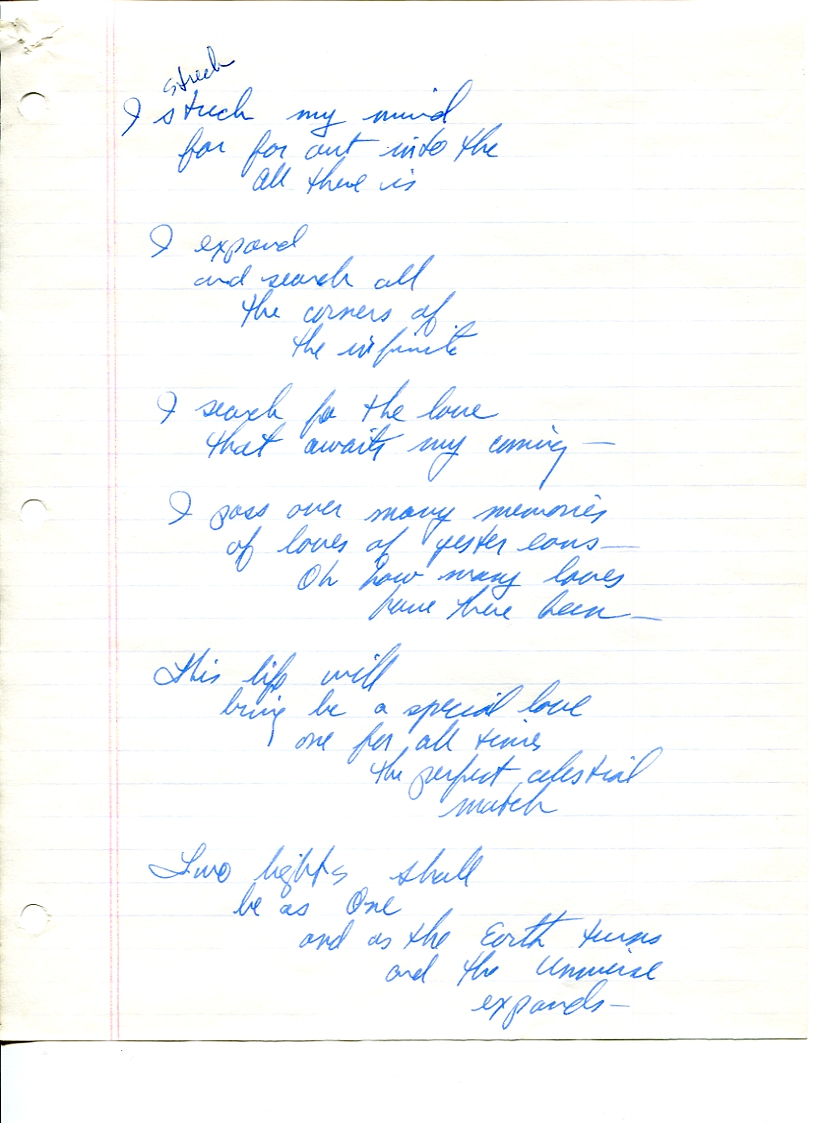 strech
I strech my mind
far far out into the
all there is
I expand
and search all
the corners of
the infinite
I search for the love
that awaits my coming —
I pass over many memories
of loves of yester eons —
Oh how many loves
have there been —
This life will
bring be a special love
one for all times
the perfect celestial
match
Two lights shall
be as One
and as the Earth turns
and the Universe
expands —